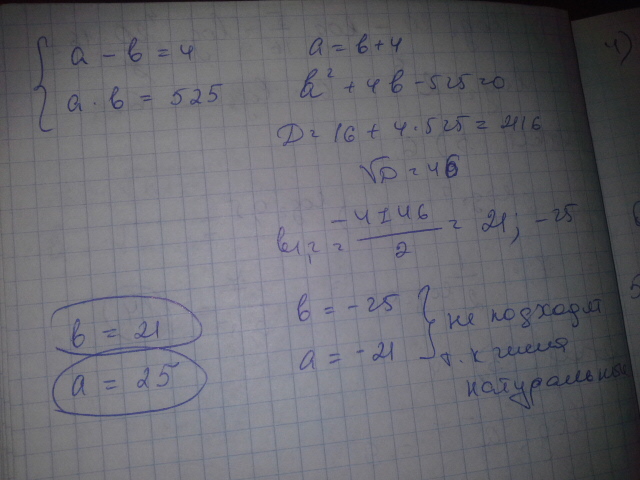 a - b = 4
a · b = 525
a = b + 4
b² + 4b - 525 = 0
D = 16 + 4 · 525 = 2116
√D = 46
b₁,₂ = = (-4 ± 46) / 2 = 21; -25
b = -25
a = -21
не подходят
т. к числа
натуральные
b = 21
a = 25
4)